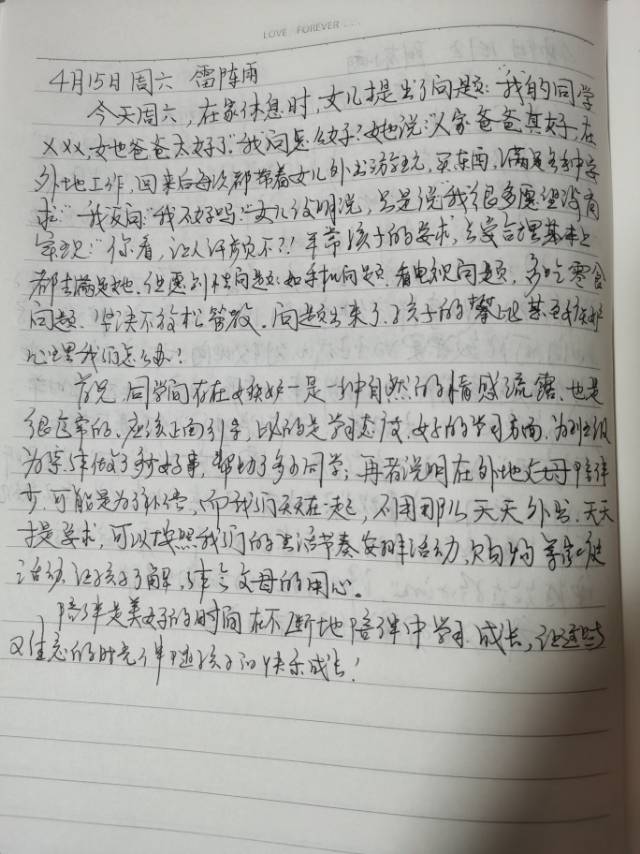 LOVE FOREVER ...
4月15日 周六 雷阵雨
今天周六,在家休息时,女儿提出了问题:"我的同学
XXX,她爸爸太好了"我问怎么好?她说:"人家爸爸真好,在
外地工作,回来后每次都带着女儿外出游玩,买东西,满足各种要
求"我反问"我不好吗?"女儿没明说,只是说"我很多愿望没有
实现"你看,让人无语不?!平常孩子的要求,只要合理基本上
都去满足她.但遇到不良问题:如手机问题.看电视问题,多吃零食
问题.坚决不放松管教.问题出来了,孩子的攀比甚至嫉妒
心理我们怎么办!
首先.同学间存在嫉妒一是一种自然的情感流露.也是
很正常的.应该正面引导,比的是学习态度,好的学习方面,为班级
为集体做了多少好事,帮助了多少同学;再者说明在外地父母陪伴
少,可能是为了补偿,而我们天天在一起,不用那么天天外出.天天
提要求,可以按照我们的生活节奏安排活动,
活动.让孩子了解,体会父母的用心。
陪伴是美好的时间在不断地陪伴中学习.成长,让这些
有意志的时光伴随孩子的快乐成长!